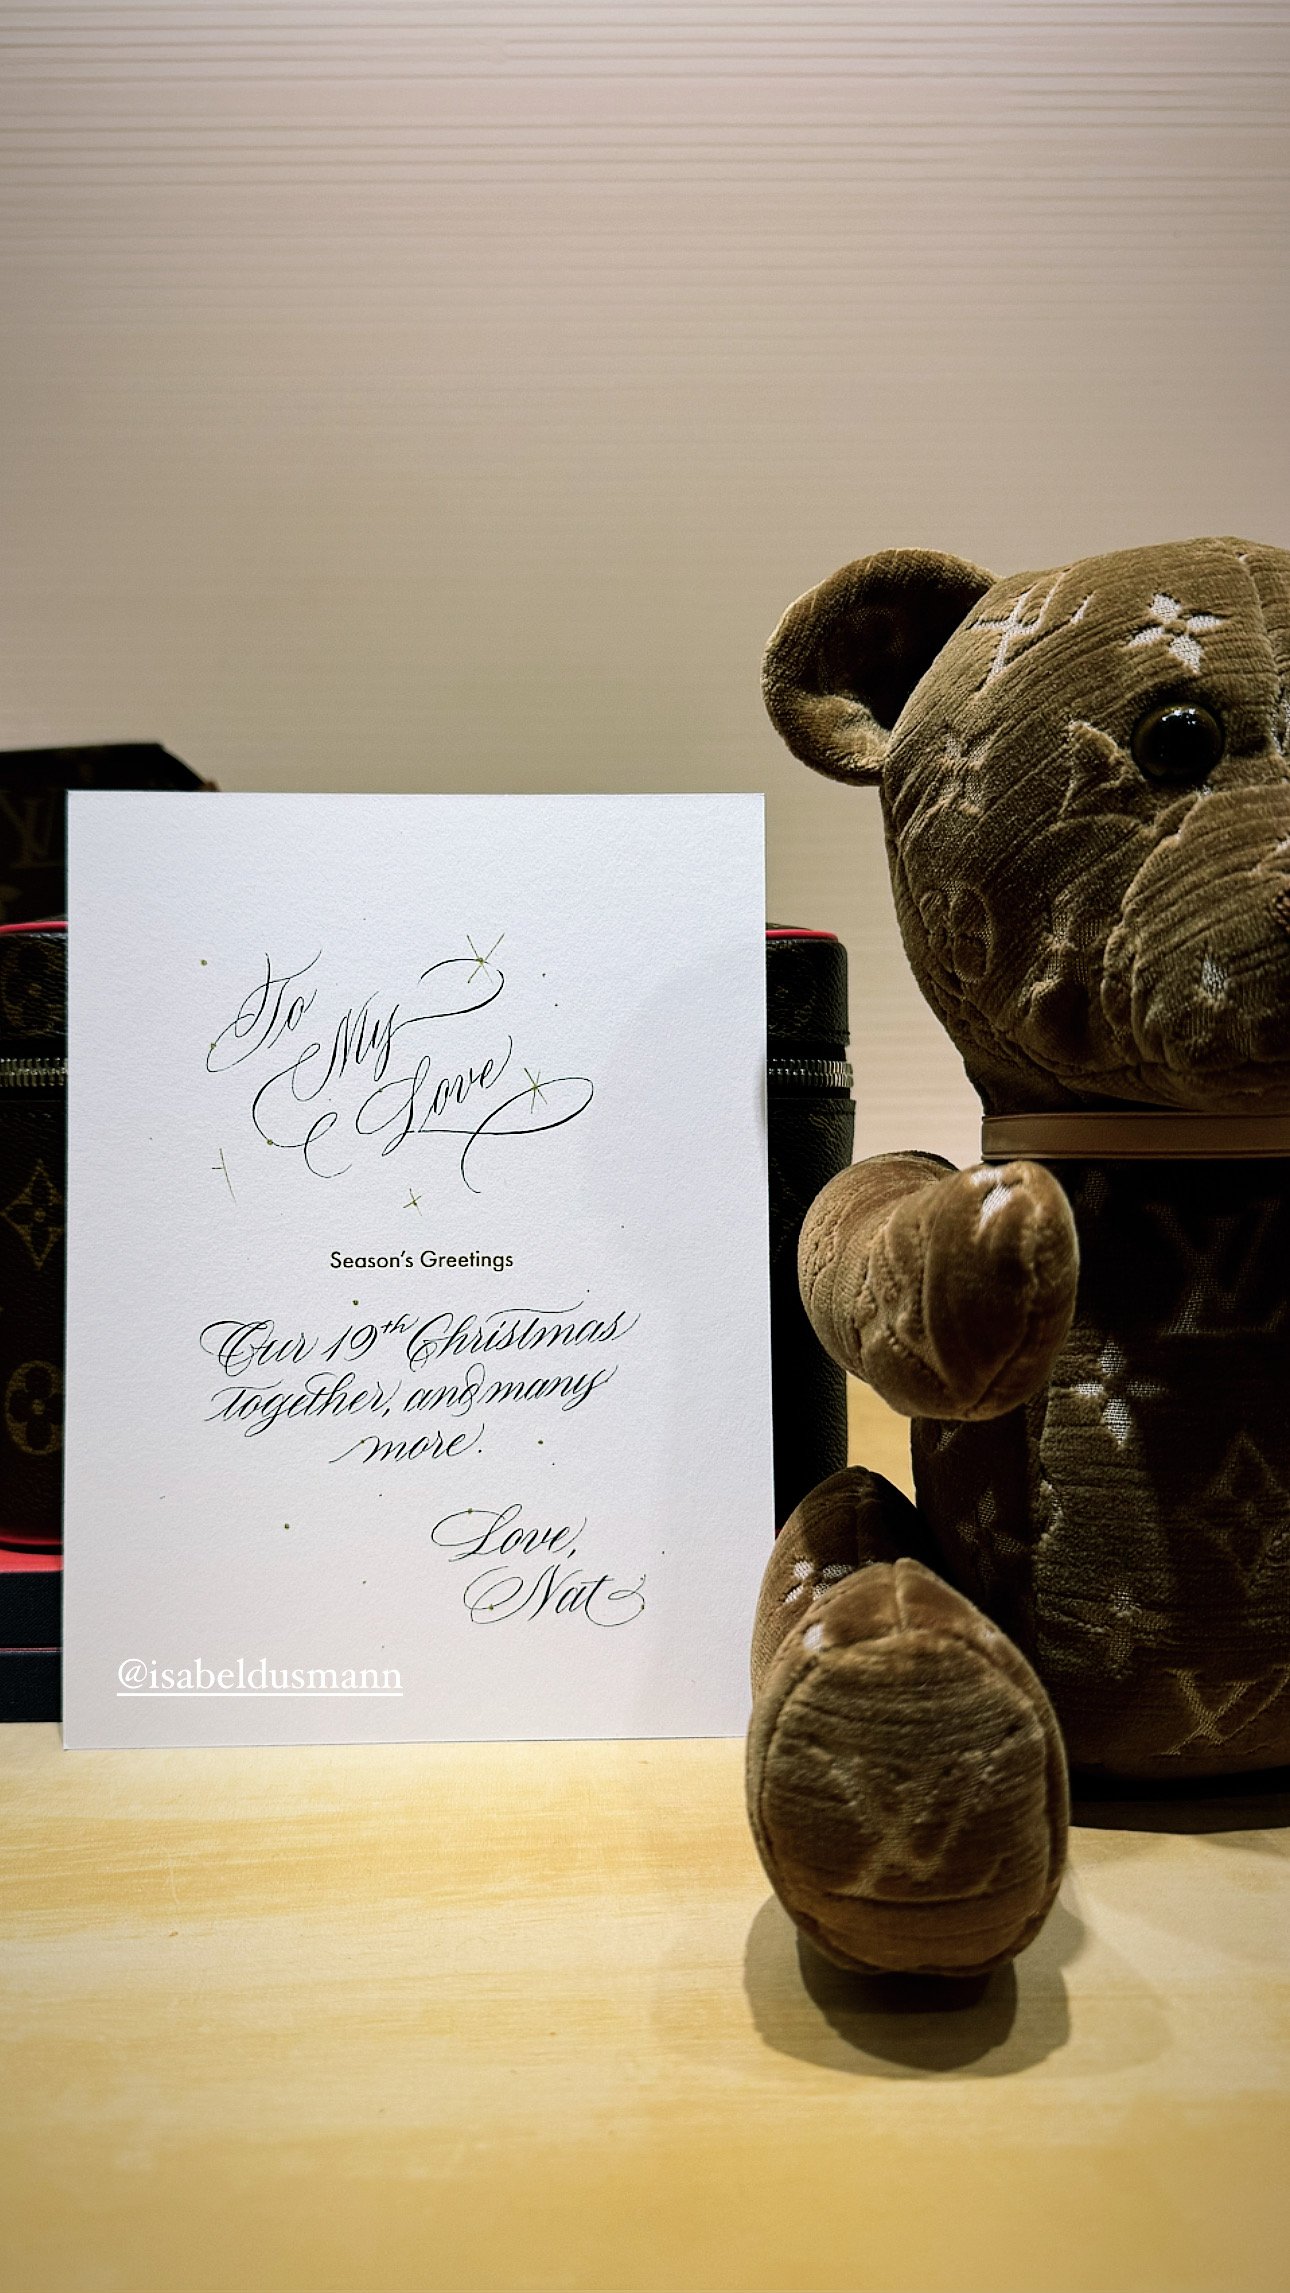 To
My
Love
Season's Greetings
Our 19th Christmas
together, and many
more.
Love,
Nat
@isabeldusmann